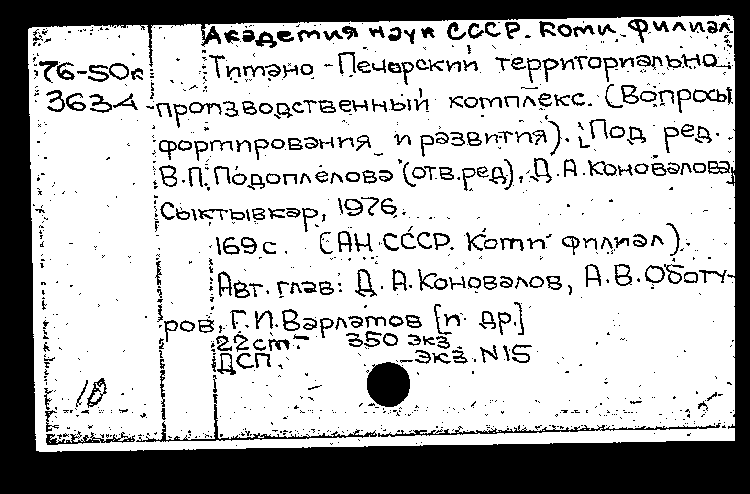 Академия наук СССР. Коми филиал
76-50к
Тимано-Печорский территориально-
3634
производственный комплекс. (Вопросы
формирования и развития). [Под ред.
В.П. Подоплелова (отв.ред), Д.А. Коновалова]
Сыктывкар, 1976.
169с. (АН СССР. Коми филиал).
Авт. глав: Д.А. Коновалов, А.В. Оботу-
ров, Г.П. Варламов [и др.]
22см. 350 экз.
ДСП. экз. N15
10